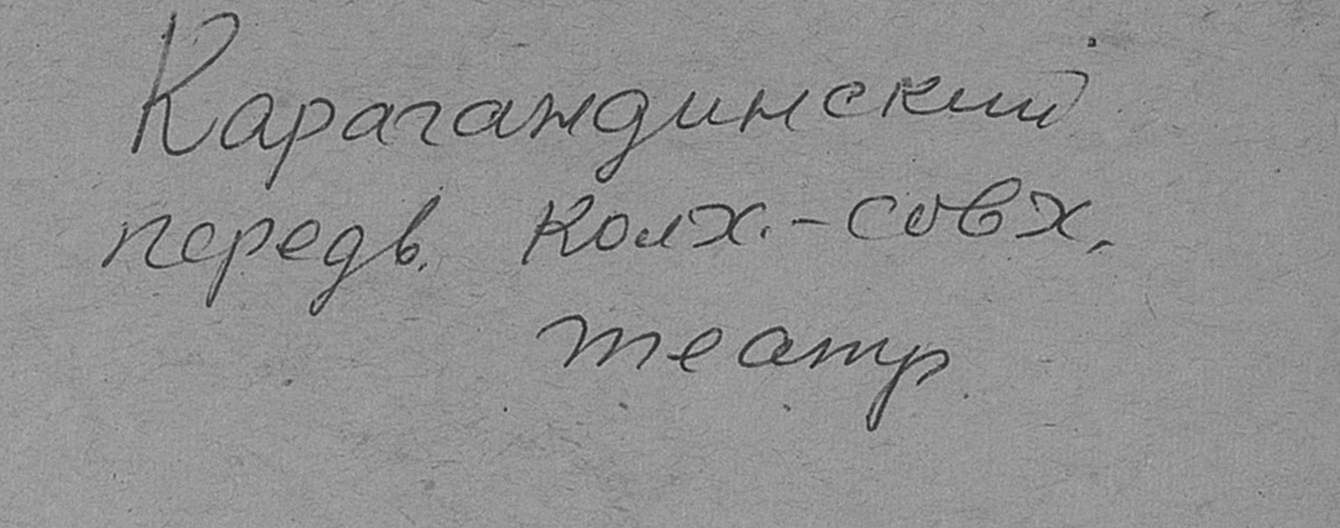 Карагандинский
передв. колх.-совх.
театр